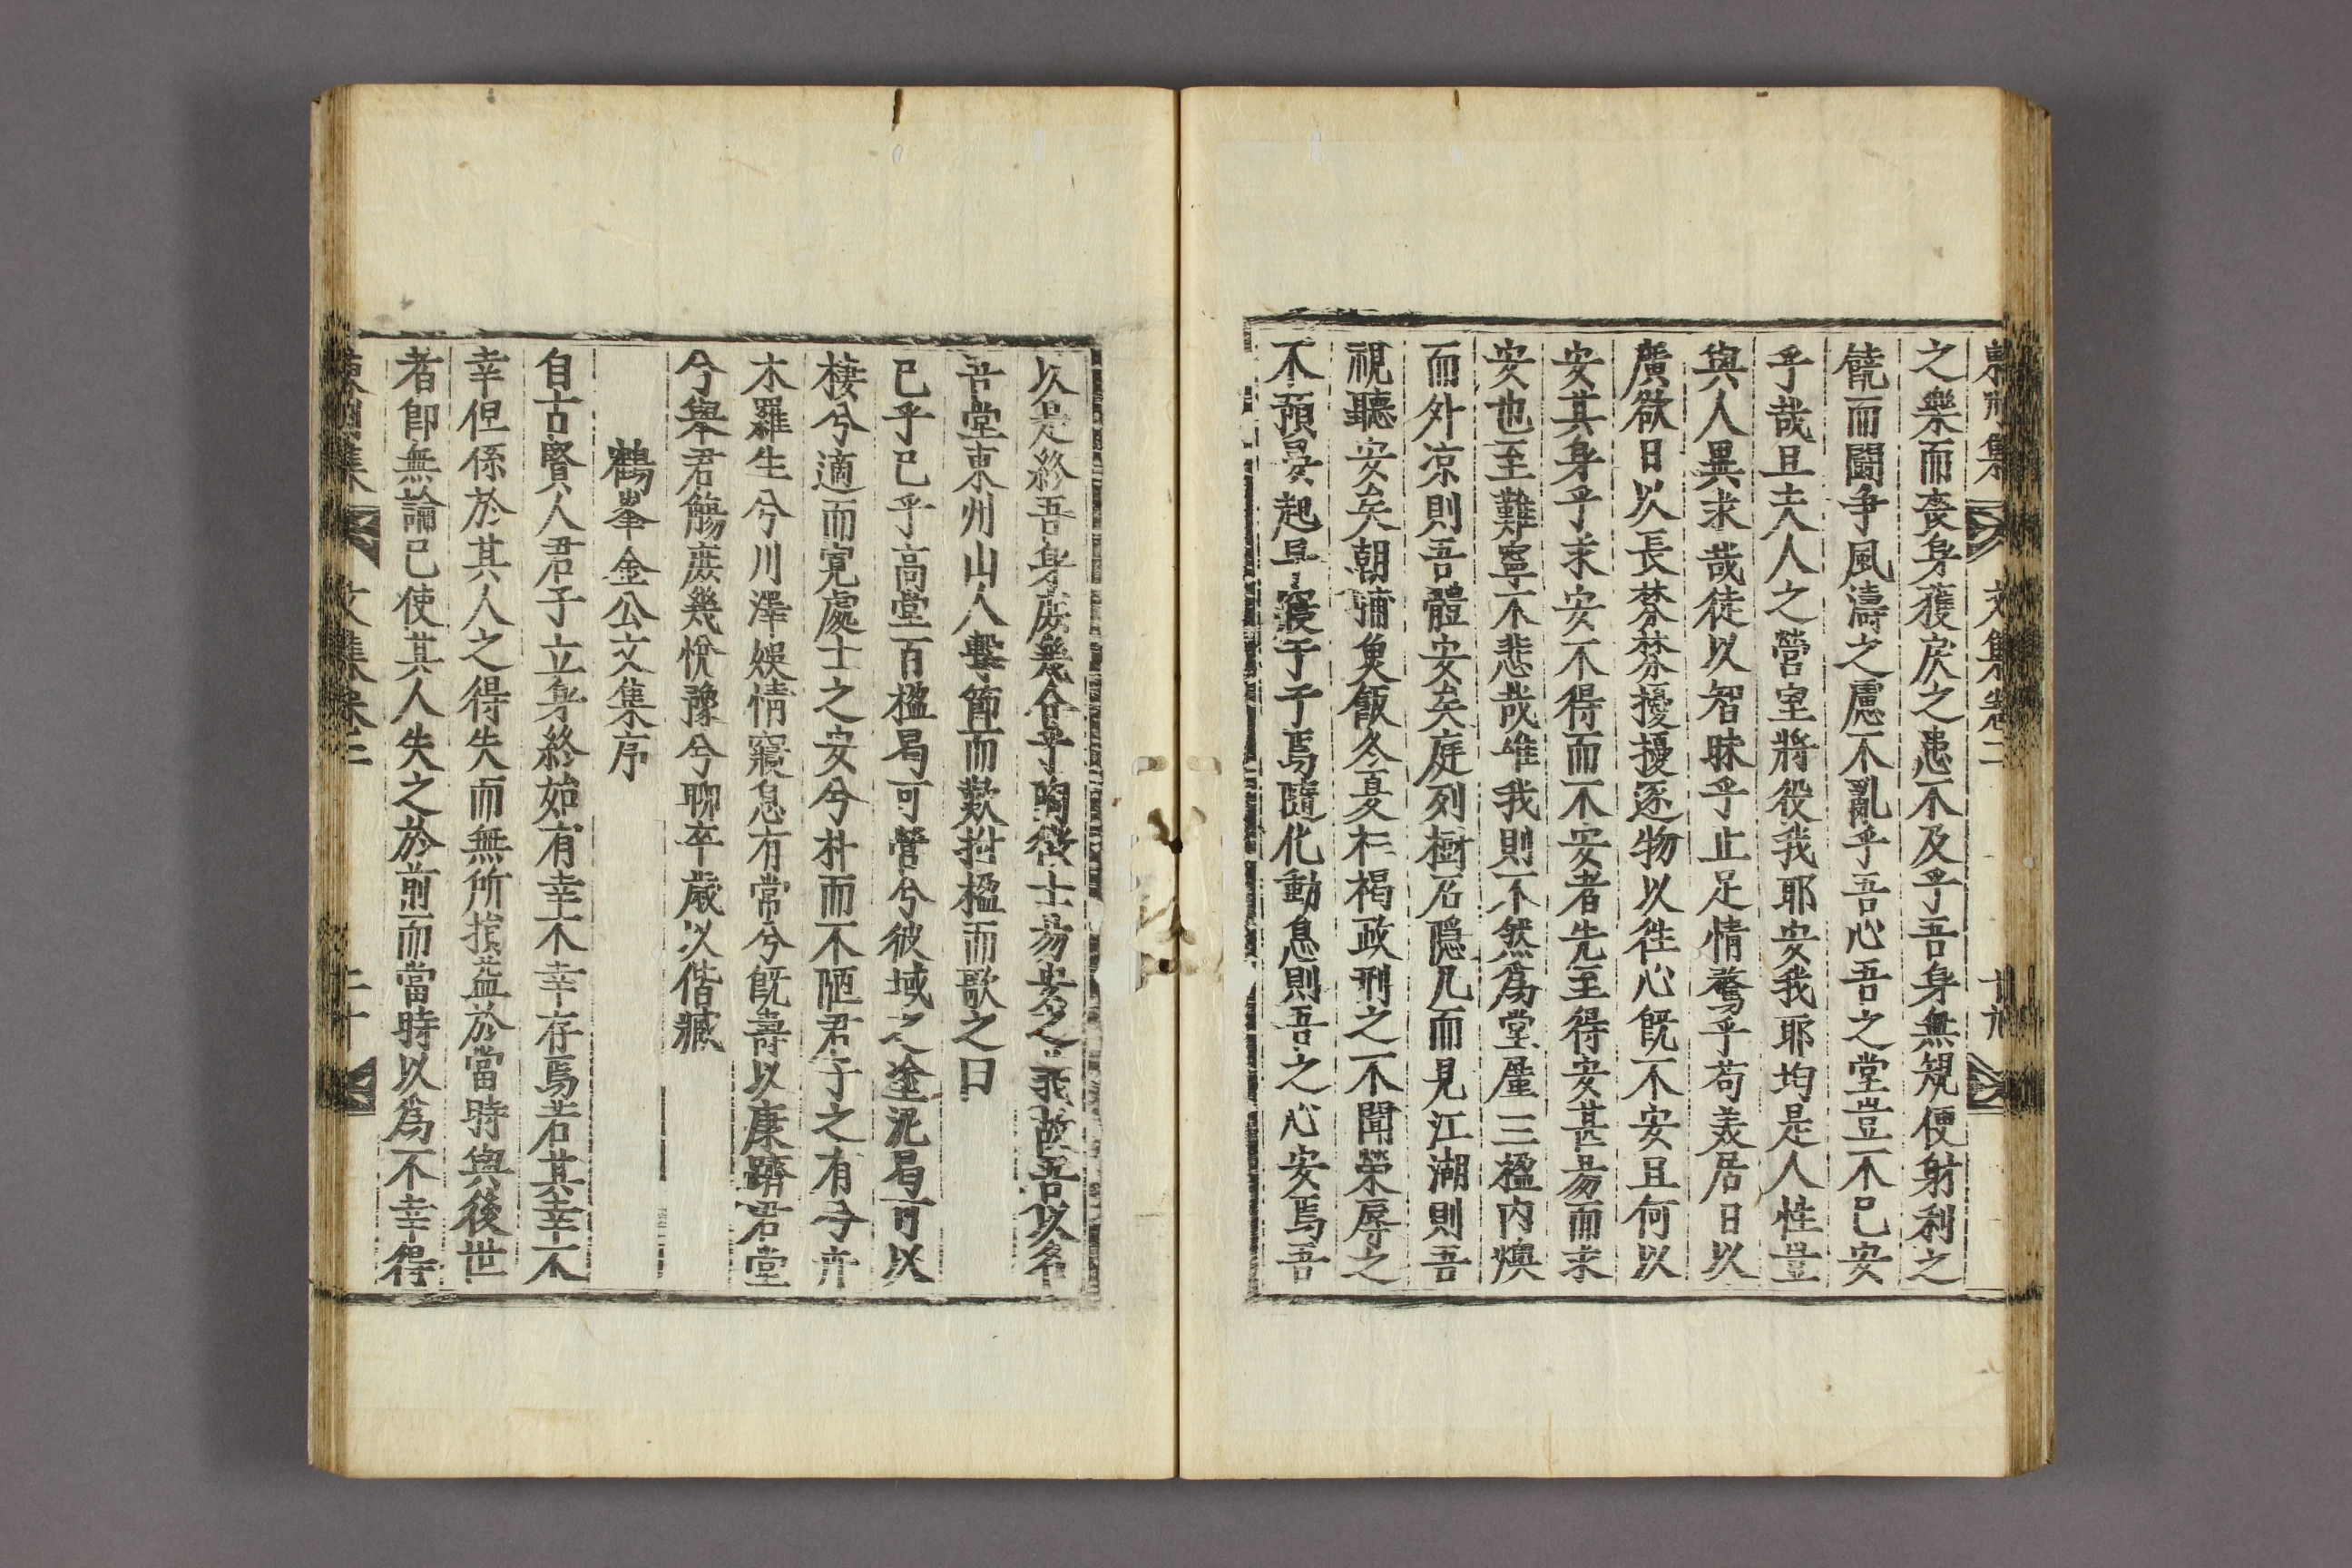 之樂而喪身獲戾之患不及乎吾身無覬便射利之
饒而鬪爭風濤之慮不亂乎吾心吾之堂豈不已安
乎哉且夫人之營室將役我耶安我耶均是人性豈
與人異求哉徒以智昧乎止足情騖乎苟美居日以
廣欲日以長棼棼擾擾逐物以徃心旣不安且何以
安其身乎求安不得而不安者先至得安甚昜而求
安也至難寧不悲哉唯我則不然爲堂廑三楹內燠
而外凉則吾體安矣庭列樹石隱几而見江湖則吾
視聽安矣朝餔魚飯冬夏布褐政刑之不聞榮辱之
不預晏起早寢于于焉隨化動息則吾之心安焉吾
以是終吾身庶幾合乎陶徵士昜安之云故吾以名
吾堂東州山人擊節而歎拊楹而歌之曰
已乎已乎高堂百楹曷可營兮彼域之塗泥曷可以
棲兮適而寬處士之安兮朴而不陋君子之有兮卉
木羅生兮川澤娛情寢息有常兮旣壽以康躋君堂
兮舉君觴庶幾悅豫兮聊卒歲以偕臧
鶴峯金公文集序
自古賢人君子立身終始有幸不幸存焉若其幸不
幸但係於其人之得失而無所損益於當時與後世
者卽無論已使其人失之於前而當時以爲不幸得
東州集 文集卷二 二十